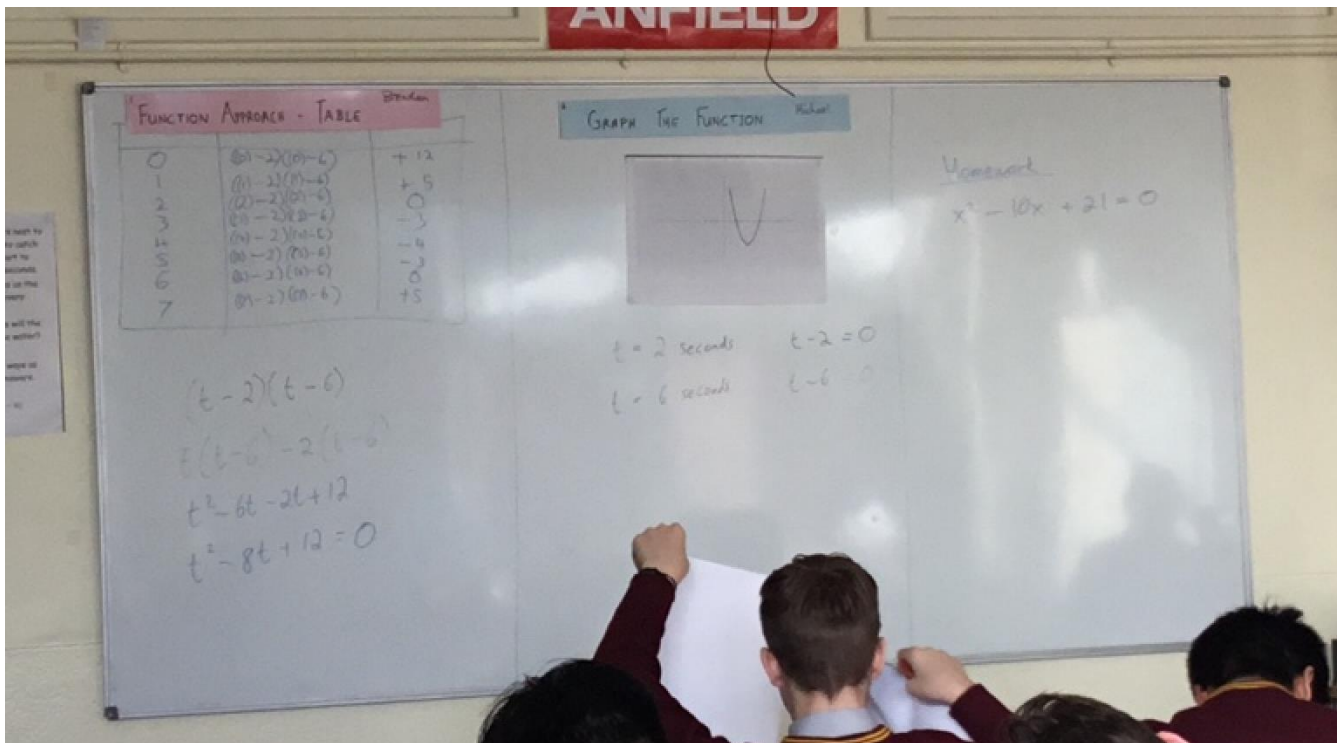 ANFIELD
FUNCTION APPROACH - TABLE
0 ((0)-2)((0)-6) +12
1 ((1)-2)((1)-6) +5
2 ((2)-2)((2)-6) 0
3 ((3)-2)((3)-6) -3
4 ((4)-2)((4)-6) -4
5 ((5)-2)((5)-6) -3
6 ((6)-2)((6)-6) 0
7 ((7)-2)((7)-6) +5
(t-2)(t-6)
t(t-6)-2(t-6)
t²-6t-2t+12
t²-8t+12=0
GRAPH THE FUNCTION Michael
t = 2 seconds t-2=0
t = 6 seconds t-6 0
Homework
x²-10x+21=0